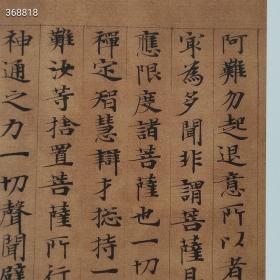 368818
阿難勿起退意所以者
寂為多聞非謂菩薩且
應限度諸菩薩也一切
禪定智慧辯才捴持一
難汝等捨置菩薩所行
神通之力一切聲聞辟